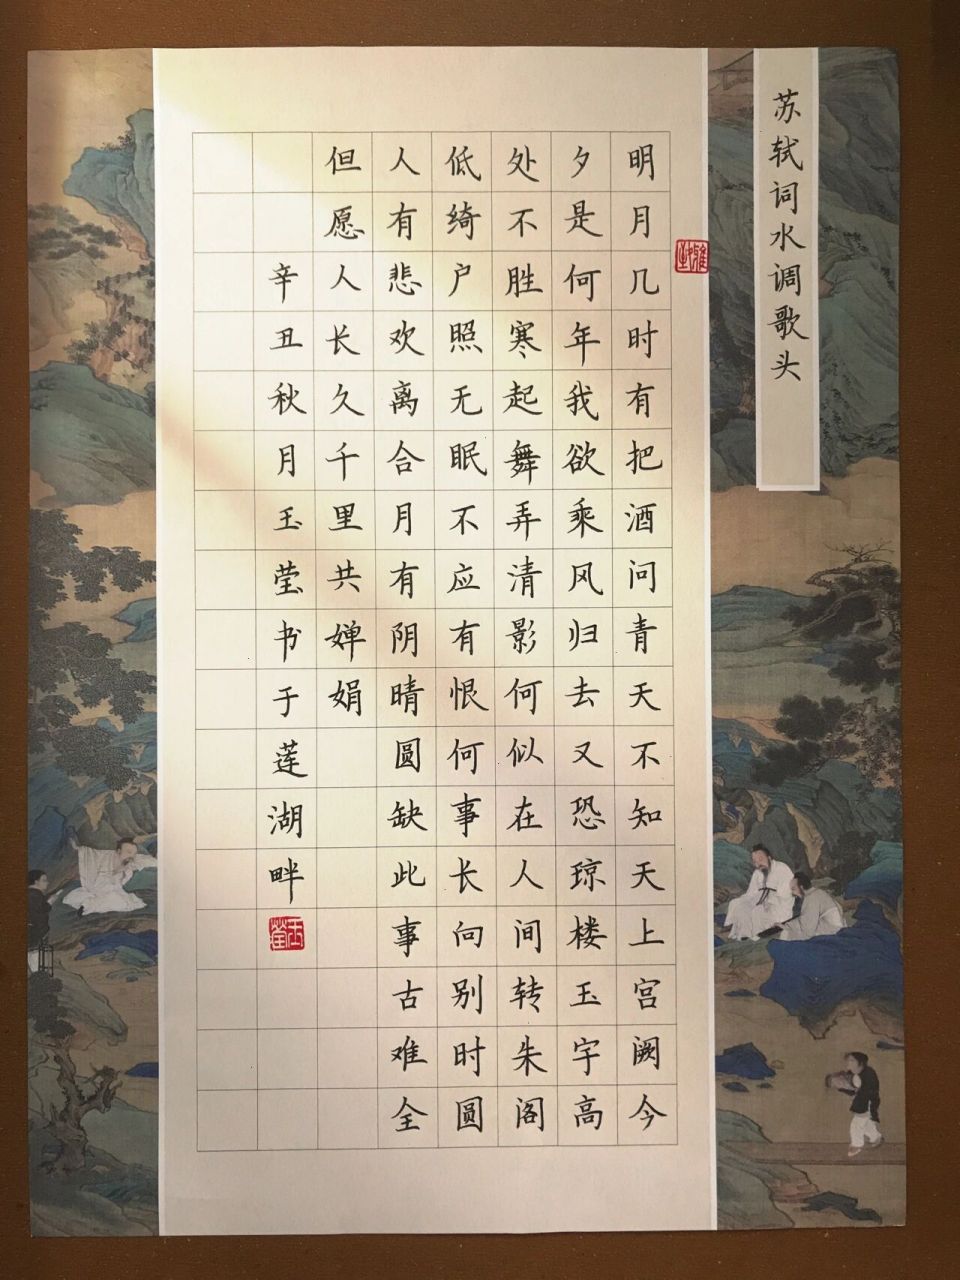 苏轼词水调歌头
明月几时有把酒问青天不知天上宫阙今
夕是何年我欲乘风归去又恐琼楼玉宇高
处不胜寒起舞弄清影何似在人间转朱阁
低绮户照无眠不应有恨何事长向别时圆
人有悲欢离合月有阴晴圆缺此事古难全
但愿人长久千里共婵娟
辛丑秋月玉莹书于莲湖畔